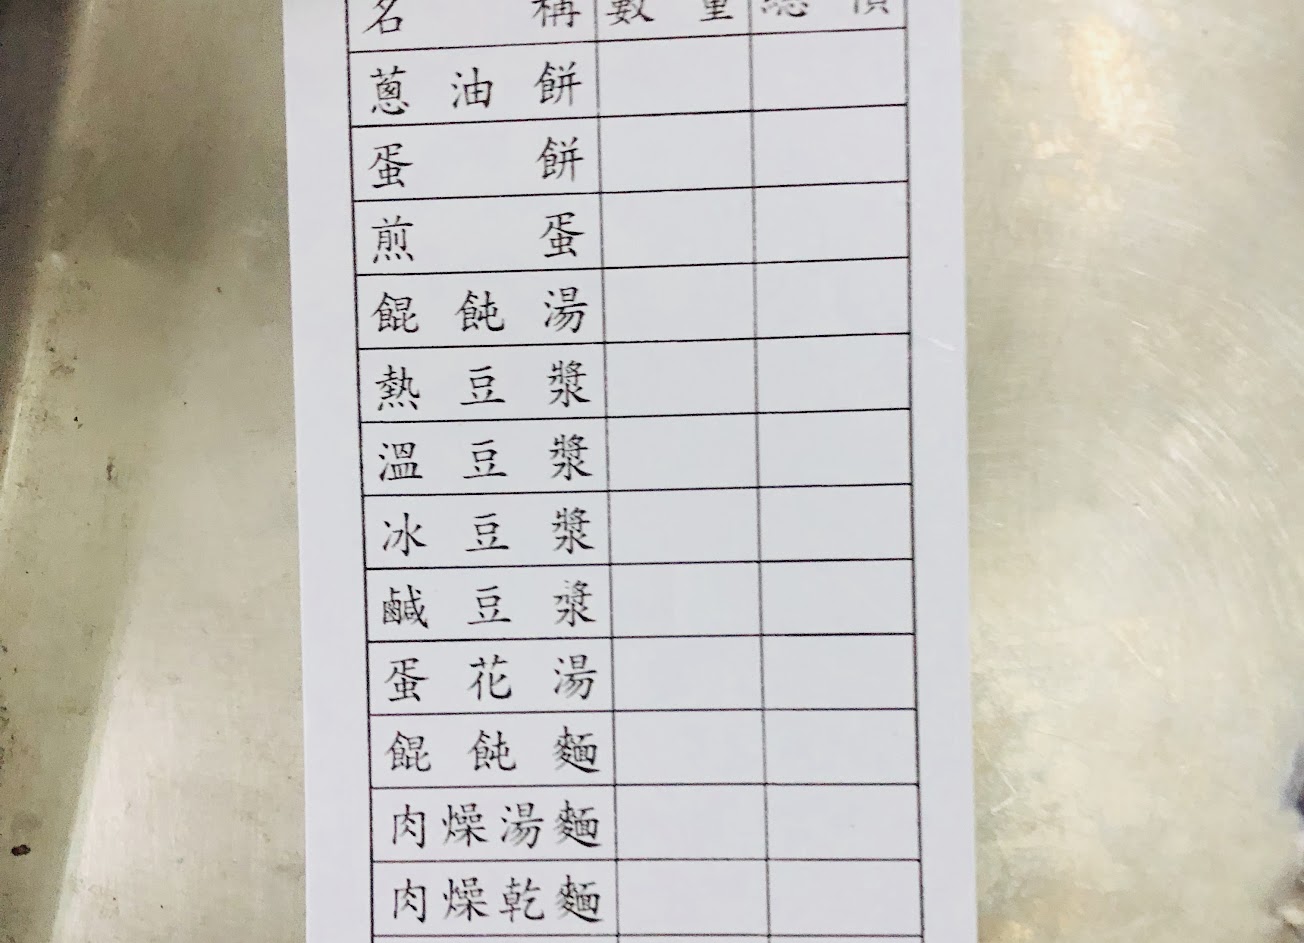 名稱 數量 總價
蔥油餅
蛋餅
煎蛋
餛飩湯
熱豆漿
溫豆漿
冰豆漿
鹹豆漿
蛋花湯
餛飩麵
肉燥湯麵
肉燥乾麵